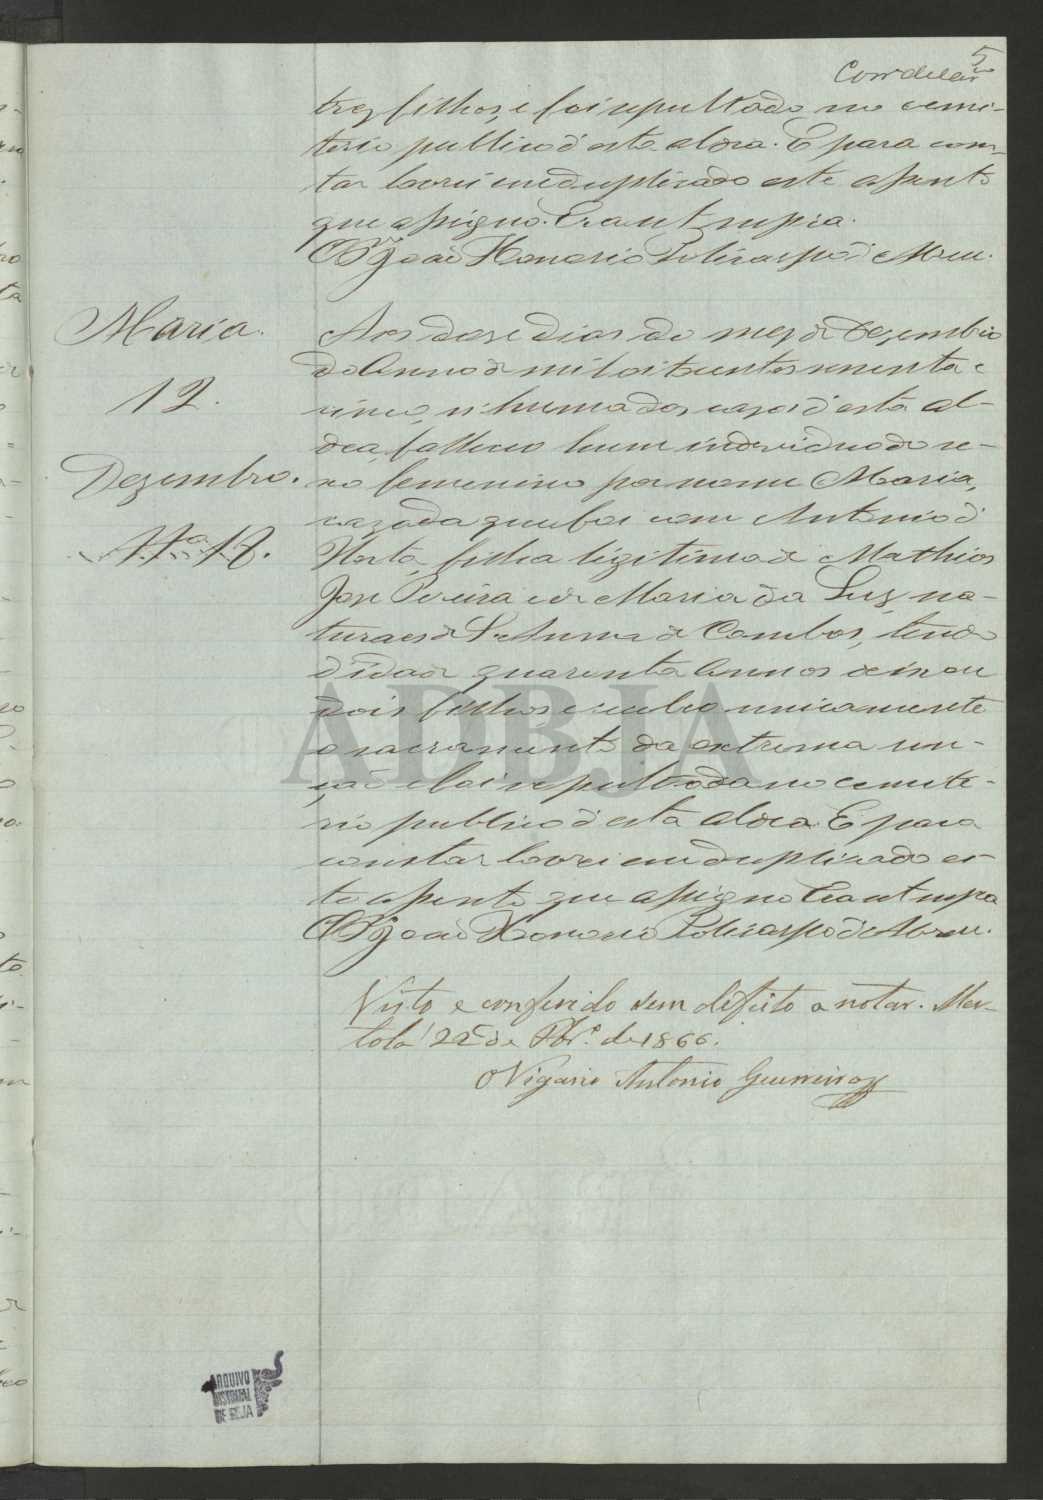 5
tres filhos, e foi sepultado no cemi-
terio publico d'esta aldea. E para cons-
tar lavrei em duplicado este assento
que assigno. Era ut supra.
João Honorio Policarpo d'Abreu.
Maria.
12.
Dezembro.
Nº 18.
Aos doze dias do mez de Dezembro
do Anno de mil oito centos secenta e
cinco, n'huma das cazas d'esta al-
dea, falleceo hum individuo do se-
xo femenino por nome Maria,
cazada que foi com Antonio d'
Horta, filha ligitima de Mathias
José Pereira e de Maria da Luz, na-
turaes de Sta Anna de Cambas, tendo
d'idade quarenta annos deixou
dois filhos e recebeo unicamente
o sacramento da extrema un-
ção e foi sepultada no cemite-
rio publico d'esta aldea. E para
constar lavrei em duplicado es-
te assento que assigno Era ut supra
João Honorio Policarpo d'Abreu.
Visto e conferido sem defeito a notar. Mer-
tola 22 de de 1866.
O Vigario Antonio Guerreiro
ADBJA
ARQUIVO
DISTRITAL
DE BEJA